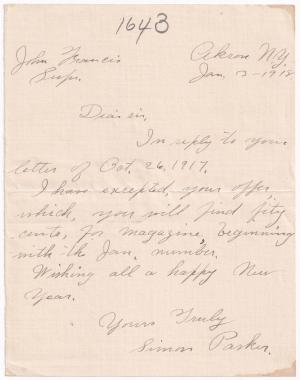 1643
John Francis
Supr.
Akron N.Y.
Jan. 3-1918
Dear sir,
In reply to your
letter of Oct. 26, 1917.
I have excepted, your offer
which, you will find fifty
cents, for magazine, beginning
with the Jan. number.
Wishing all a happy New
Year.
Yours Truly
Simon Parker.